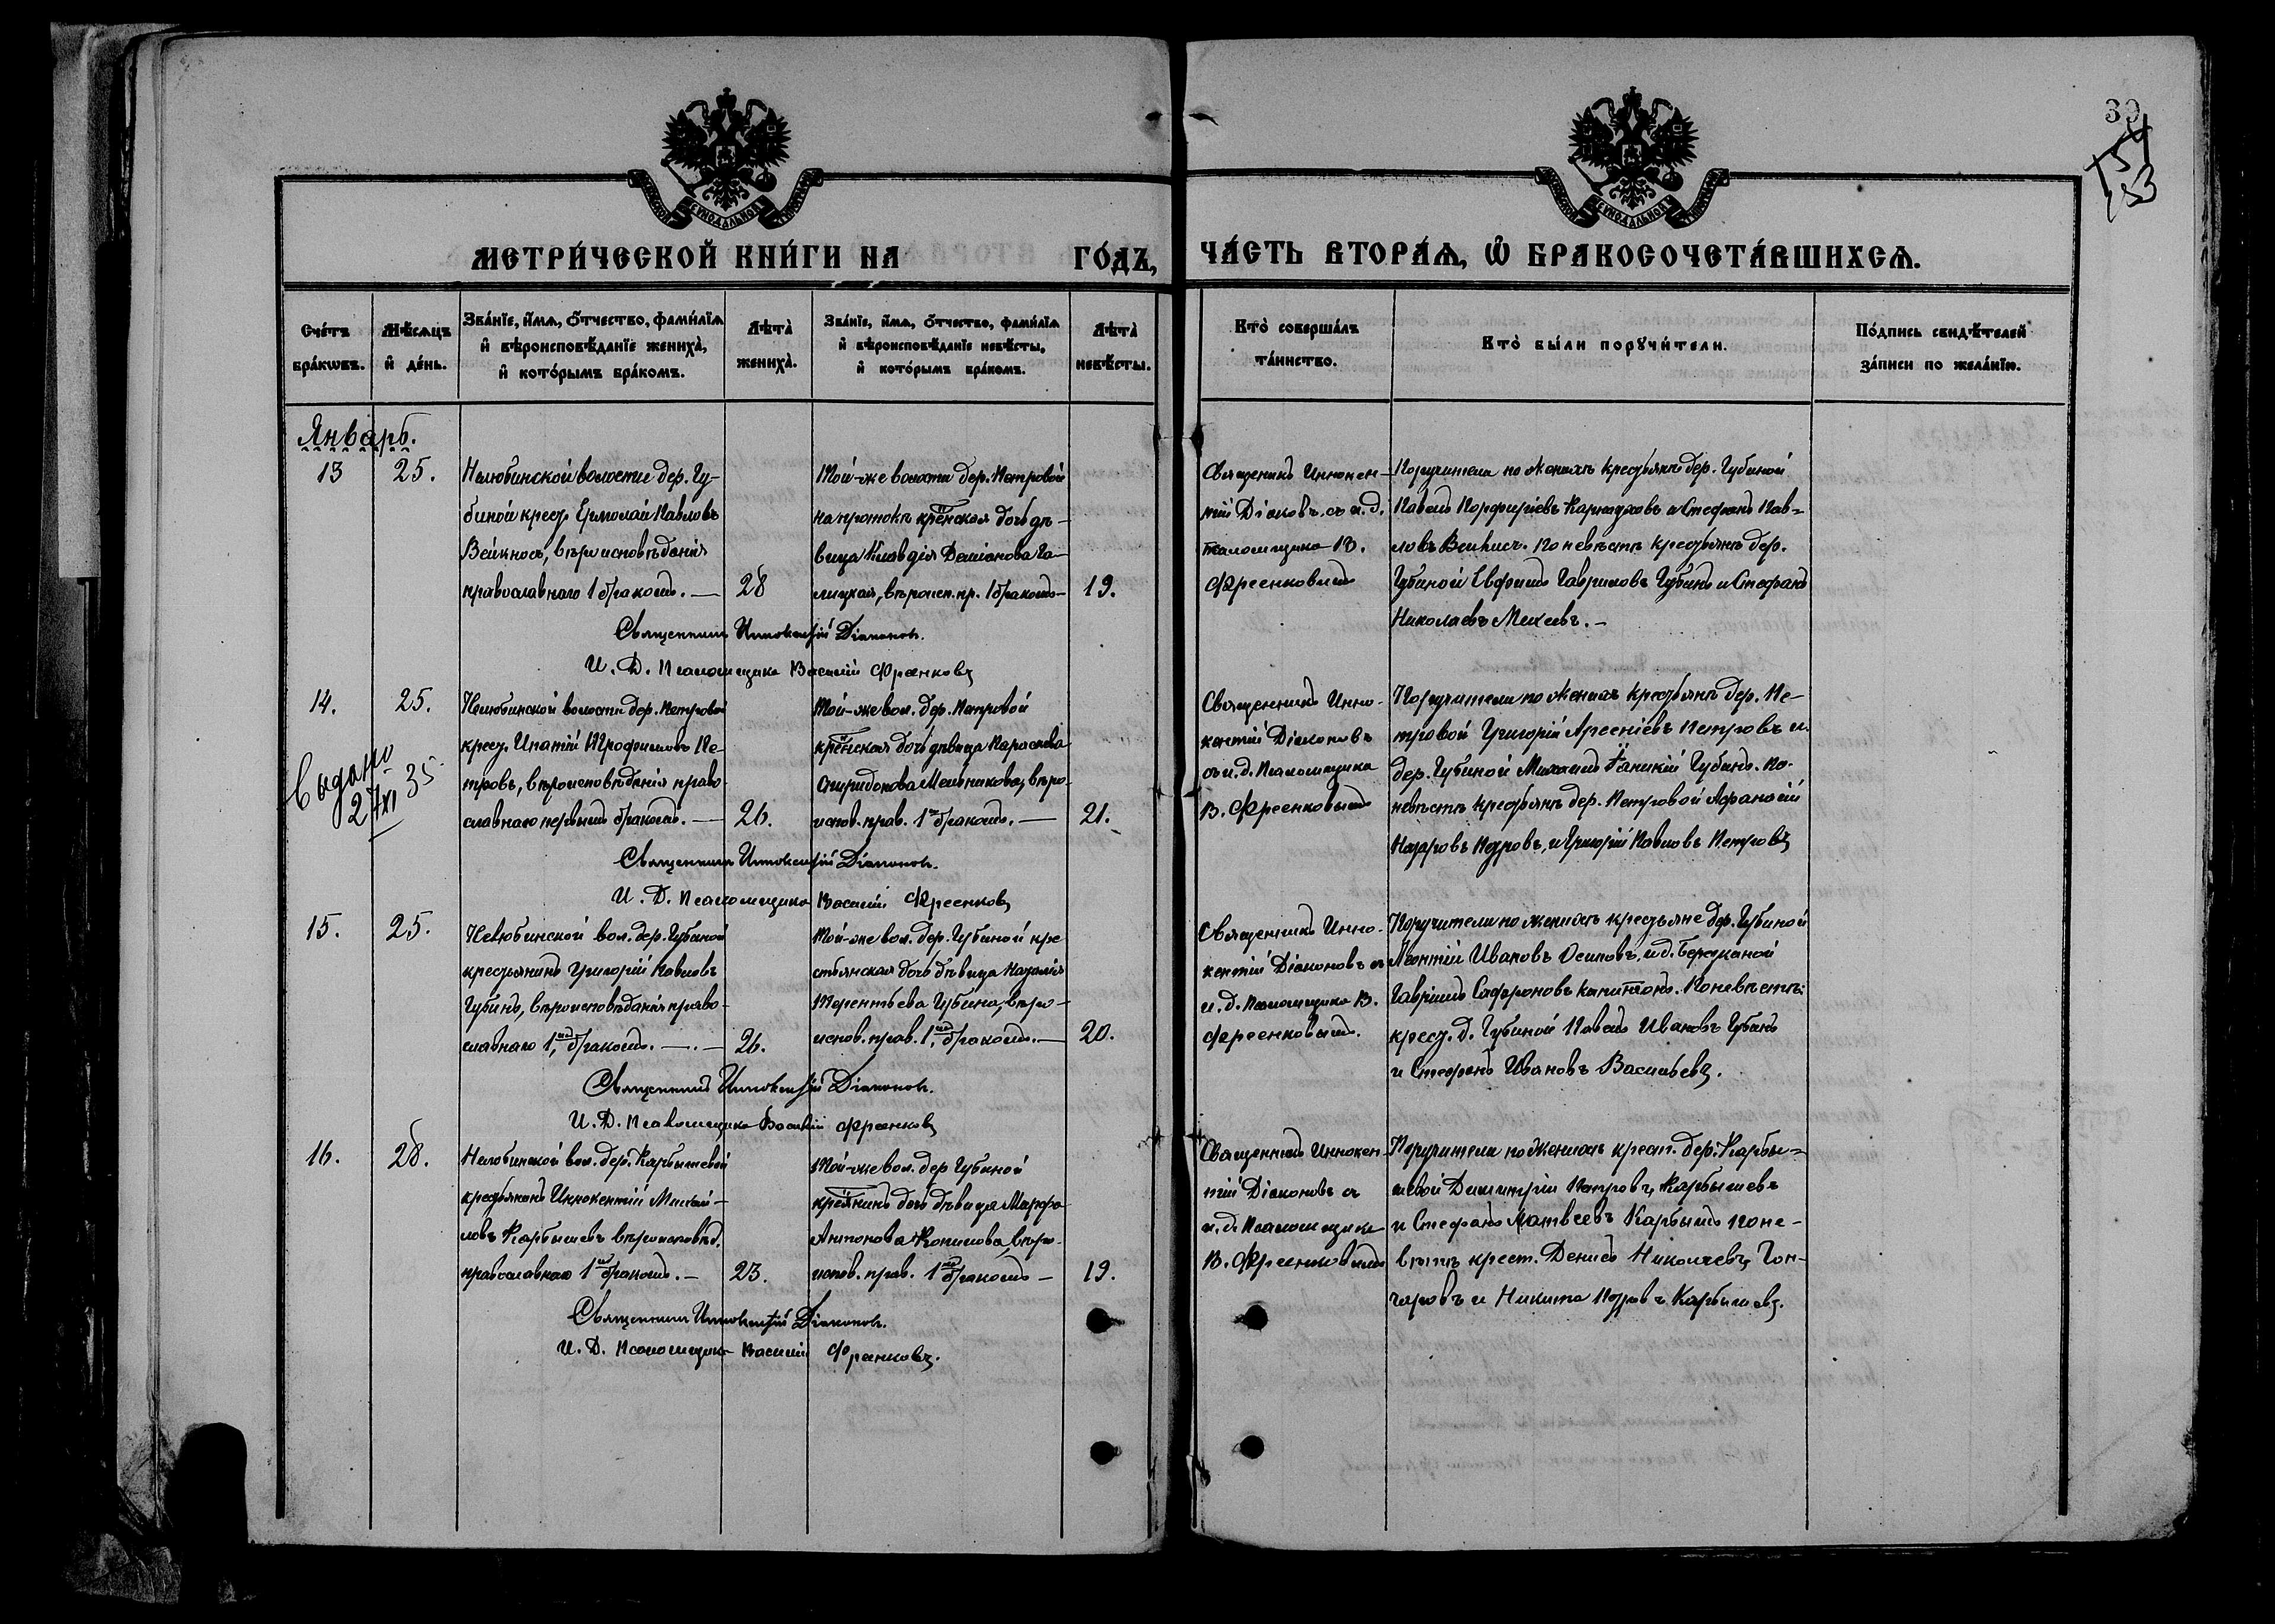 39
154
153
МЕТРИ́ЧЕСКОЙ КНИ́ГИ НА ГО́ДЪ,
ЧА́СТЬ ВТОРА́Ѧ, Ѽ БРАКОСОЧЕТА́ВШИХСѦ.
Сче́тъ бра́кѡвъ.
Мѣ́сѧцъ и҆ де́нь.
Зва́нїе, и҆́мѧ, ѻ҆́тчество, фами́лїѧ
и҆ вѣроисповѣ́данїе жениха̀,
и҆ кото́рымъ бра́комъ.
Лѣта̀ жениха̀.
Зва́нїе, и҆́мѧ, ѻ҆́тчество, фами́лїѧ
и҆ вѣроисповѣ́данїе невѣ́сты,
и҆ кото́рымъ бра́комъ.
Лѣта̀ невѣ́сты.
Кто̀ соверша́лъ та́инство.
Кто̀ бы́ли порꙋчи́тели.
По́дпись свидѣ́телей за́писи по жела́нїю.
Январь.
13
25.
Нелюбинской волости дер. Гу-
биной крест. Ермолай Павловъ
вѣроисповѣданія
православнаго 1 бракомъ. —
28
Той-же волости дер. Петровой
на протокѣ крёнская дочь дѣ-
вица Клавдія Даміанова Га-
лицкая, вѣроисп. пр. 1 бракомъ —
19.
Священникъ Иннокен-
тій Діаконовъ съ и. д.
псаломщика В.
Фреенковымъ
Поручители по женихѣ крестьянѣ дер. Губиной
Павелъ Порфиріевъ и Стефанъ Пав-
ловъ По невѣстѣ крестьянѣ дер.
Губиной Гавриловъ Губинъ и Стефанъ
Николаевъ Михеевъ. —
Священникъ Иннокентій Діаконовъ.
И. Д. Псаломщика Василій Фреенковъ
14.
25.
выдано
27/XI 35
Нелюбинской волости дер. Петровой
крест. Ипатій Трофимовъ Пе-
тровъ, вѣроисповѣданія право-
славнаго первымъ бракомъ. —
26.
Той-же вол. дер. Петровой
крёнская дочь дѣвица Параскева
Спиридонова Мельникова, вѣро-
испов. прав. 1 бракомъ. —
21.
Священникъ Инно-
кентій Діаконовъ
съ и. д. Псаломщика
В. Фреенковымъ
Поручители по женихѣ крестьянѣ дер. Пе-
тровой Григорій Арсеніевъ Петровъ и
дер. Губиной Михаилъ Губинъ. По
невѣстѣ крестьянѣ дер. Петровой Афанасій
Назаровъ и Григорій Павловъ Петровъ
Священникъ Иннокентій Діаконовъ.
И. Д. Псаломщика Василій Фреенковъ
15.
25.
Нелюбинской вол. дер. Губиной
крестьянинъ Григорій Павловъ
Губинъ, вѣроисповѣданія право-
славнаго 1мъ бракомъ. —. —
26.
Той-же вол. дер. Губиной кре
стьянская дочь дѣвица Наталія
Терентьева Губина, вѣро-
испов. прав. 1мъ бракомъ. —
20.
Священникъ Инно-
кентій Діаконовъ съ
и. д. Псаломщика В.
Фреенковымъ.
Поручители по женихѣ крестьяне дер. Губиной
Леонтій Ивановъ Осиповъ, и д.
Гавріилъ Сафроновъ Капитонъ. По невѣстѣ:
крест. д. Губиной Павелъ Ивановъ Губинъ
и Стефанъ Ивановъ Васильевъ.
Священникъ Иннокентій Діаконовъ.
И. Д. Псаломщика Василій Фреенковъ
16.
28.
Нелюбинской вол. дер. Карбышевой
крестьянинъ Иннокентій Михай-
ловъ Карбышевъ вѣроисповѣд.
православнаго 1мъ бракомъ. —
23.
Той-же вол. дер Губиной
дочь дѣвица Марфа
Антонова Копылова, вѣро-
испов. прав. 1мъ бракомъ —
19.
Священникъ Иннокен-
тій Діаконовъ съ
и. д. Псаломщика
В. Фреенковымъ
Поручители по женихѣ крест. дер. Карбы-
шевой Димитрій Петровъ Карбышевъ
и Стефанъ Матвеевъ Карбышъ по не-
вѣстѣ крест. Денисъ Николаевъ Гон-
чаровъ и Никита Карбышевъ.
Священникъ Иннокентій Діаконовъ.
И. Д. Псаломщика Василій Фреенковъ.